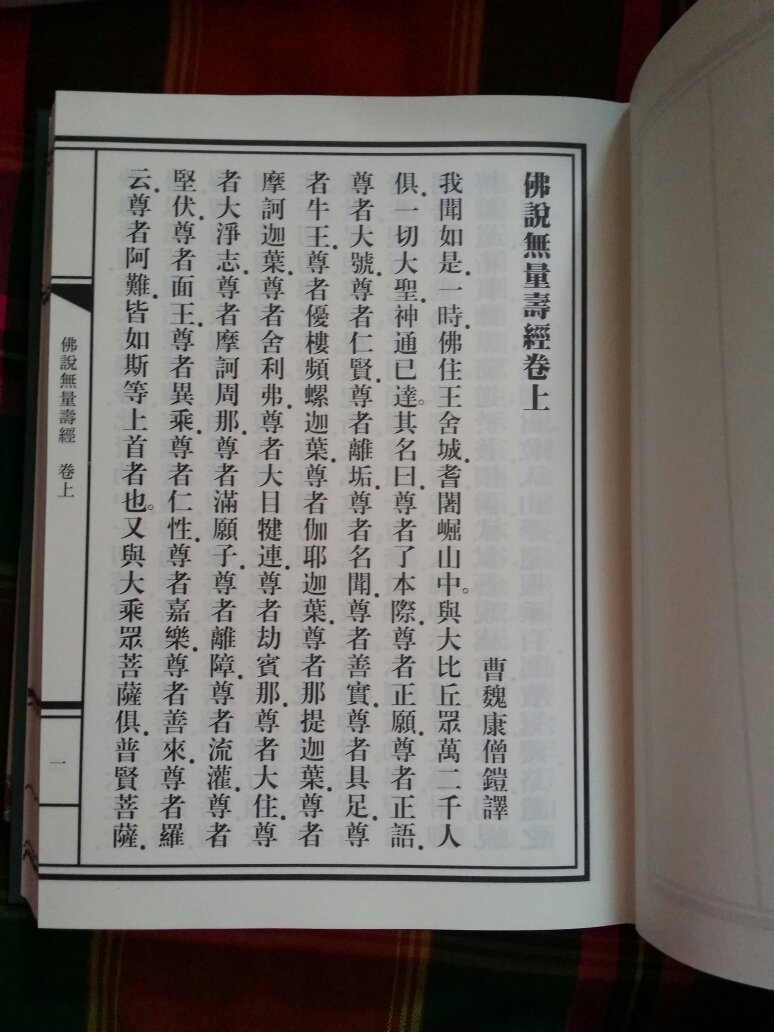 佛說無量壽經卷上
曹魏康僧鎧譯
我聞如是．一時．佛住王舍城．耆闍崛山中。與大比丘眾萬二千人
俱．一切大聖．神通已達。其名曰．尊者了本際．尊者正願．尊者正語．
尊者大號．尊者仁賢．尊者離垢．尊者名聞．尊者善實．尊者具足．尊
者牛王．尊者優樓頻螺迦葉．尊者伽耶迦葉．尊者那提迦葉．尊者
摩訶迦葉．尊者舍利弗．尊者大目犍連．尊者劫賓那．尊者大住．尊
者大淨志．尊者摩訶周那．尊者滿願子．尊者離障．尊者流灌．尊者
堅伏．尊者面王．尊者異乘．尊者仁性．尊者嘉樂．尊者善來．尊者羅
云．尊者阿難．皆如斯等上首者也。又與大乘眾菩薩俱．普賢菩薩．
佛說無量壽經 卷上
一